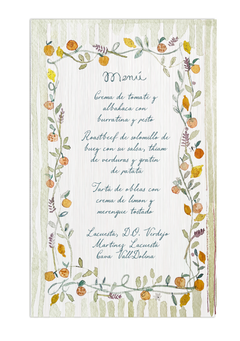 Menú
Crema de tomate y
albahaca con
burratina y pesto
Roastbeef de solomillo de
buey con su salsa, tham
de verduras y gratin
de patata
Tarta de obleas con
crema de limon y
merengue tostado
Lacuesta, D.O. Verdejo
Martinez Lacuesta
Cava VallDolina